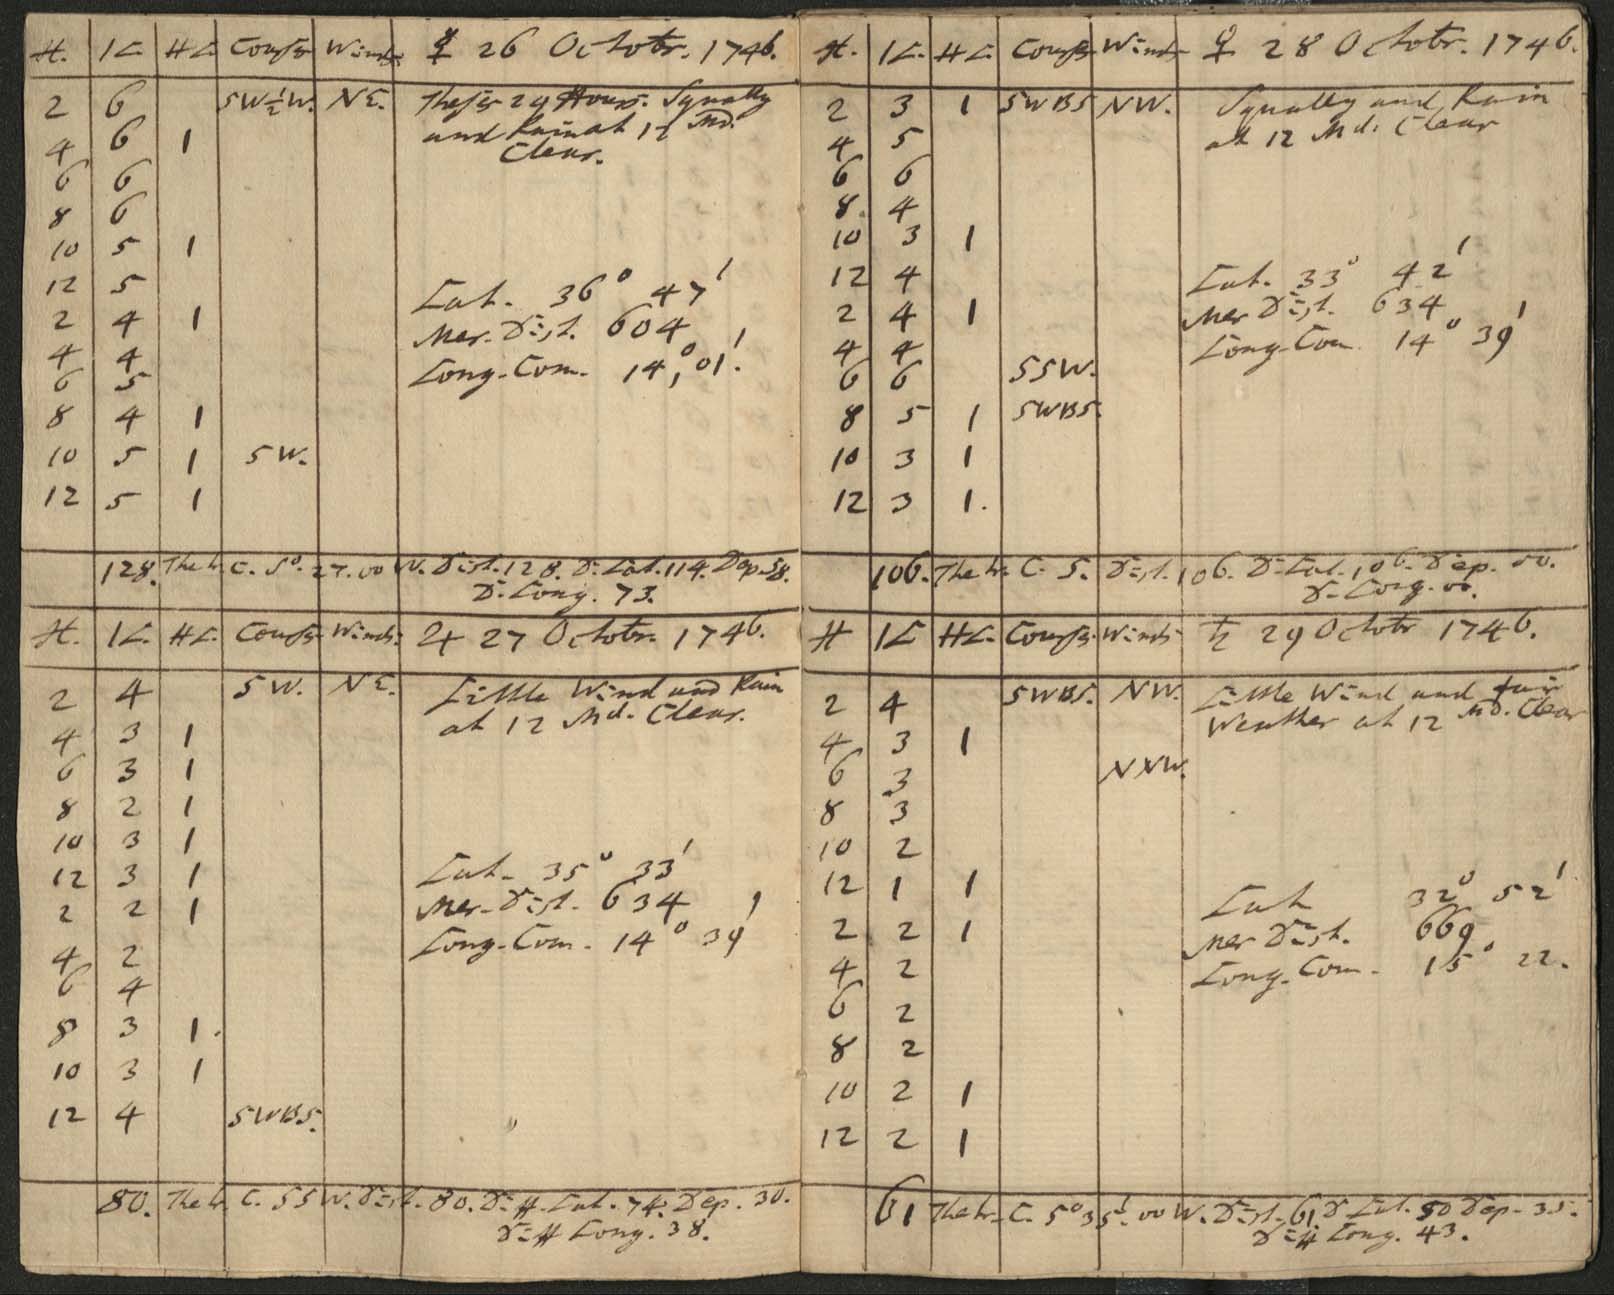 H. K. HK. Courses Winds ☿ 26 Octobr. 1746.
2 6 SW½W. NE. These 24 Hours. Squally
4 6 1 and Rain at 12 Md.
Clear.
6 6
8 6
10 5 1
12 5 Lat. 36° 47'
2 4 1 Mer. Dist. 604
4 4 Long. Com. 14,° 01'.
6 5
8 4 1
10 5 1 SW.
12 5 1
128. The tr. C. So. 27.00 W. Dist. 128. D. Lat. 114. Dep. 58.
D. Long. 73.
H. K. HK. Courses Winds. ♃ 27 Octobr. 1746.
2 4 SW. NE. Little Wind and Rain
4 3 1 at 12 Md. Clear.
6 3 1
8 2 1
10 3 1
12 3 1 Lat. 35° 33'
2 2 1 Mer. Dist. 634
4 2 Long. Com. 14° 39'
6 4
8 3 1.
10 3 1
12 4 SWBS.
80. The tr. C. SSW. Dist. 80. Diff. Lat. 74. Dep. 30.
Diff Long. 38.
H. K. HK. Courses Winds ♀ 28 Octobr. 1746.
2 3 1 SWBS NW. Squally and Rain
4 5 at 12 Md. Clear
6 6
8. 4
10 3 1
12 4 Lat. 33° 42'
2 4 1 Mer Dist. 634
4 4 Long. Com. 14° 39'
6 6 SSW.
8 5 1 SWBS.
10 3 1
12 3 1.
106. The tr. C. S. Dist. 106. D. Lat. 106. Dep. 00.
D. Long. 00.
H K HK. Courses Winds ♄ 29 Octobr 1746.
2 4 SWBS. NW. Little Wind and fair
4 3 1 Weather at 12 Md. Clear
6 3 NNW.
8 3
10 2
12 1 1 Lat 32° 52'
2 2 1 Mer Dist. 669
4 2 Long. Com. 15° 22.
6 2
8 2
10 2 1
12 2 1
61 The tr. C. S° 35'.00 W. Dist. 61 D Lat. 50 Dep. 35.
Diff Long. 43.